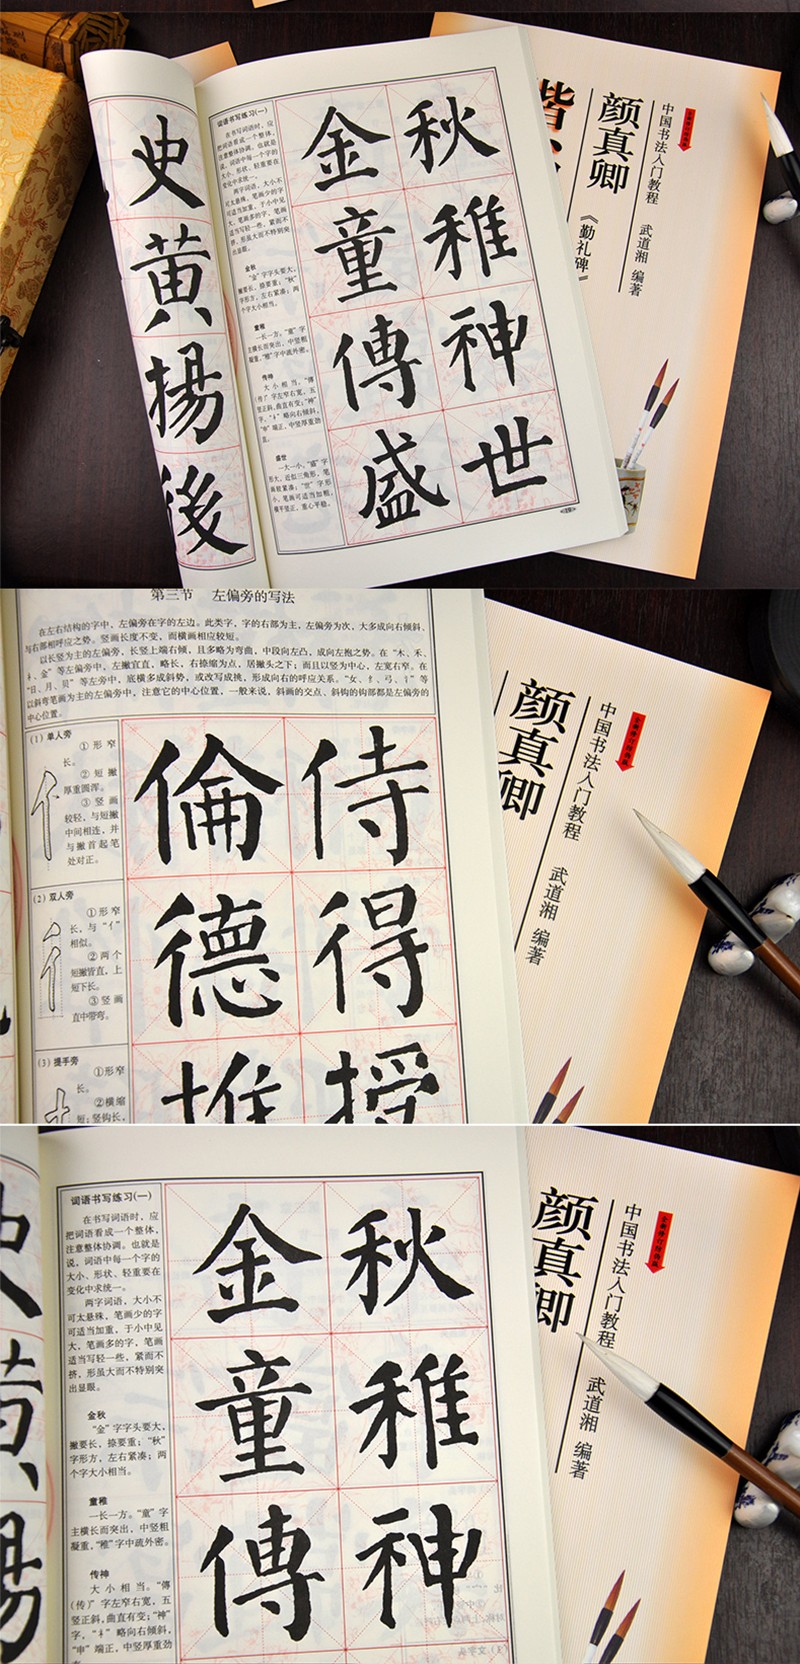 史
黄
揚
後
词语书写练习(一)
在书写词语时，应
把词语看成一个整体，
注意整体协调。也就是
说，词语中每一个字的
大小、形状、轻重要在
变化中求统一。
两字词语，大小不
可太悬殊，笔画少的字
可适当加重，于小中见
大，笔画多的字，笔画
适当写轻一些，紧而不
挤，形虽大而不特别突
出显眼。
金秋
“金”字字头要大，
撇要长，捺要重；“秋”
字形方，左右紧凑；两
个字大小相当。
童稚
一长一方。“童”字
主横长而突出，中竖粗
凝重，“稚”字中疏外密。
传神
大小相当。“傳
(传)”字左窄右宽，五
竖正斜，曲直有变；“神”
字，“礻”略向右倾斜，
“申”端正，中竖厚重劲
直。
盛世
一大一小。“盛”字
形大，近似三角形，笔
画较紧凑；“世”字形
小，笔画可适当加粗，
横平竖正，重心平稳。
金秋
童稚
傳神
盛世
楷
颜真卿
《勤礼碑》
中国书法入门教程
武道湘 编著
第三节 左偏旁的写法
在左右结构的字中，左偏旁在字的左边。此类字，字的右部为主，左偏旁为次，大多成向右倾斜、
与右部相呼应之势。竖画长度不变，而横画相应较短。
以长竖为主的左偏旁，长竖上端右倾，且多略为弯曲，中段向左凸，成向左抱之势。在“木、禾、
礻、金”等左偏旁中，左撇宜直，略长，右捺缩为点，居撇头之下；而且以竖为中心，左宽右窄。在
“日、月、贝”等左旁中，底横多成斜势，或改写成挑，形成向右的呼应关系。“女、犭、弓、讠”等
以斜弯笔画为主的左偏旁中，注意它的中心位置，一般来说，斜画的交点、斜钩的钩部都是左偏旁的
中心位置。
(1) 单人旁
①形窄
长。
②短撇
厚重圆浑。
③竖画
较轻，与短撇
中间相连，并
与撇首起笔
处对正。
(2) 双人旁
①形窄
长，与“亻”
相似。
②两个
短撇皆直，上
短下长。
③竖画
直中带弯。
(3) 提手旁
①形窄
长。
②横缩
短；竖钩长，
倫侍
德得
推授
颜真卿
中国书法入门教程
全新修订经典版
武道湘 编著
词语书写练习(一)
在书写词语时，应
把词语看成一个整体，
注意整体协调。也就是
说，词语中每一个字的
大小、形状、轻重要在
变化中求统一。
两字词语，大小不
可太悬殊，笔画少的字
可适当加重，于小中见
大，笔画多的字，笔画
适当写轻一些，紧而不
挤，形虽大而不特别突
出显眼。
金秋
“金”字字头要大，
撇要长，捺要重；“秋”
字形方，左右紧凑；两
个字大小相当。
童稚
一长一方。“童”字
主横长而突出，中竖粗
凝重，“稚”字中疏外密。
传神
大小相当。“傳
(传)”字左窄右宽，五
竖正斜，曲直有变；“神”
字，“礻”略向右倾斜，
“申”端正，中竖厚重劲
金秋
童稚
傳神
颜真卿
中国书法入门教程
全新修订经典版
武道湘 编著